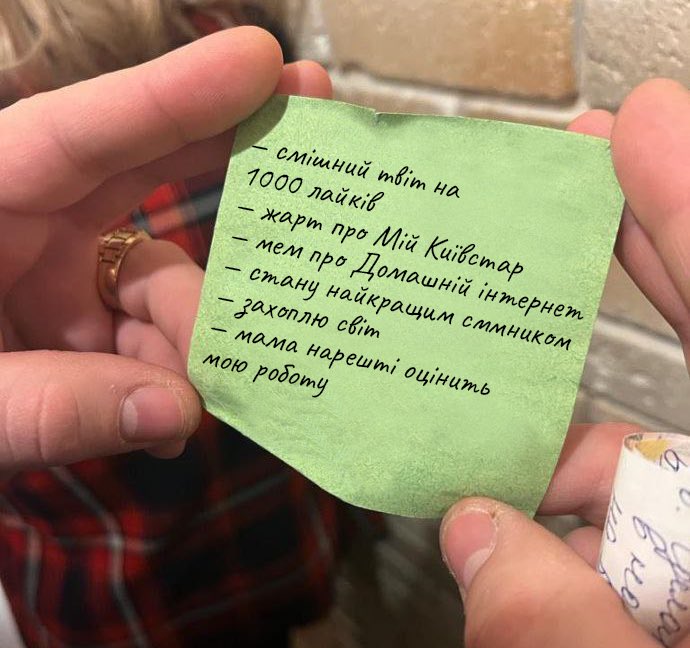 – смішний твіт на
1000 лайків
– жарт про Мій Київстар
– мем про Домашній інтернет
– стану найкращим сммником
– захоплю світ
– мама нарешті оцінить
мою роботу